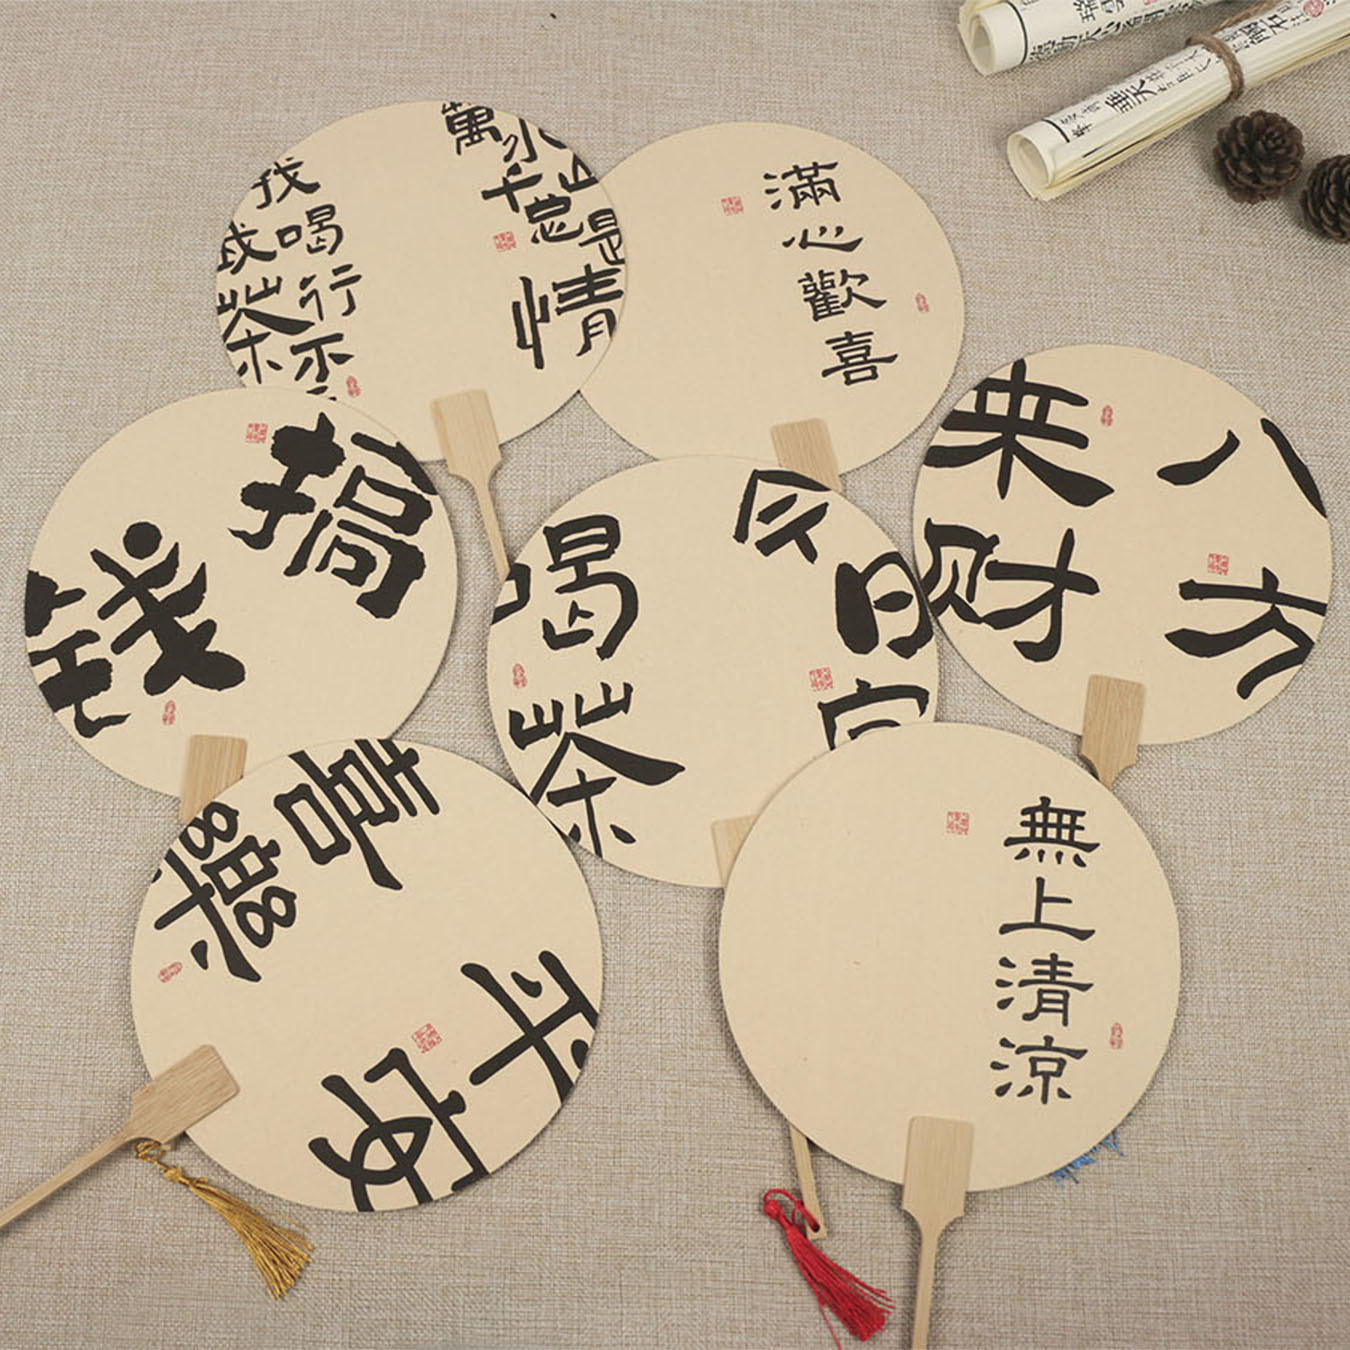 萬水千山
总是情
找我喝茶
行不
滿心歡喜
八方
来财
搞
钱
今日宜
喝茶
平安
喜樂
無上清涼